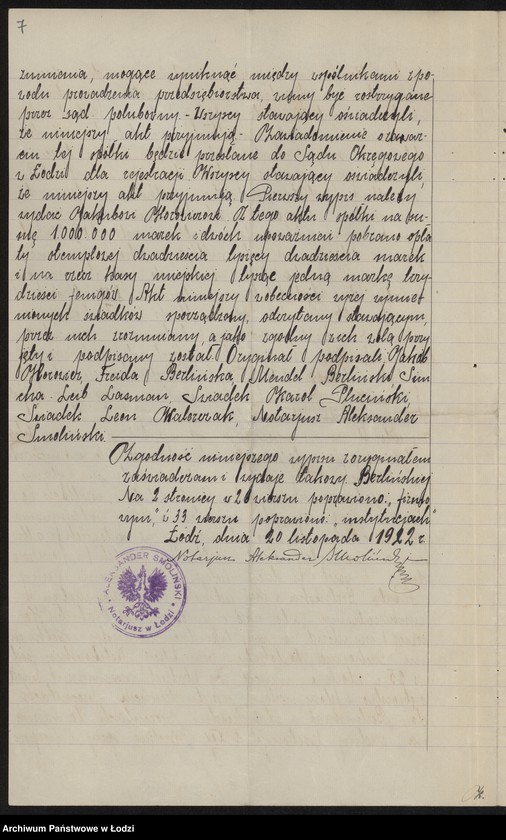 7
zumienia, mogące wyniknąć między wspólnikami z po-
wodu prowadzenia przedsiębiorstwa, winny być rozstrzygane
przez Sąd polubowny. - Wszyscy stawający oświadczyli,
że niniejszy akt przyjmują. - Zawiadomienie o zawar-
ciu tej spółki będzie przesłane do Sądu Okręgowego
w Łodzi dla rejestracji Wszyscy stawający oświadczyli,
że niniejszy akt przyjmują Pierwszy wypis należy
wydać Jakubowi Horowiczowi. Z tego aktu spółki na su-
mę 1.000.000 marek i dwóch upoważnień pobrano opła
ty stemplowej dwadzieścia tysięcy dwadzieścia marek
i na rzecz kasy miejskiej tysiąc jedną markę trzy
dzieści fenigów. Akt niniejszy w obecności wyżej wymie-
nionych świadków sporządzony, odczytany stawającym,
przez nich zrozumiany, a jako zgodny z ich wolą przy
jęty i podpisany został. Oryginał podpisali: Jakób
Horowicz, Frejda Berlińska, Mendel Berliński, Sim
cha - Lejb Lasman, Świadek Karol Pluciński,
Świadek Leon Walczak, Notarjusz Aleksander
Smoliński.
Zgodność niniejszego wypisu z oryginałem
zaświadczam i wydaję takowy Berlińskiej
Na 2 stronicy w 20 wierszu poprawiono: „firmo
wym," i 33 wierszu poprawiono: „instytucjach"
Łódź, dnia 20 listopada 1922 r.
Notarjusz Aleksander Smoliński
ALEKSANDER SMOLIŃSKI
Notarjusz w Łodzi
Archiwum Państwowe w Łodzi